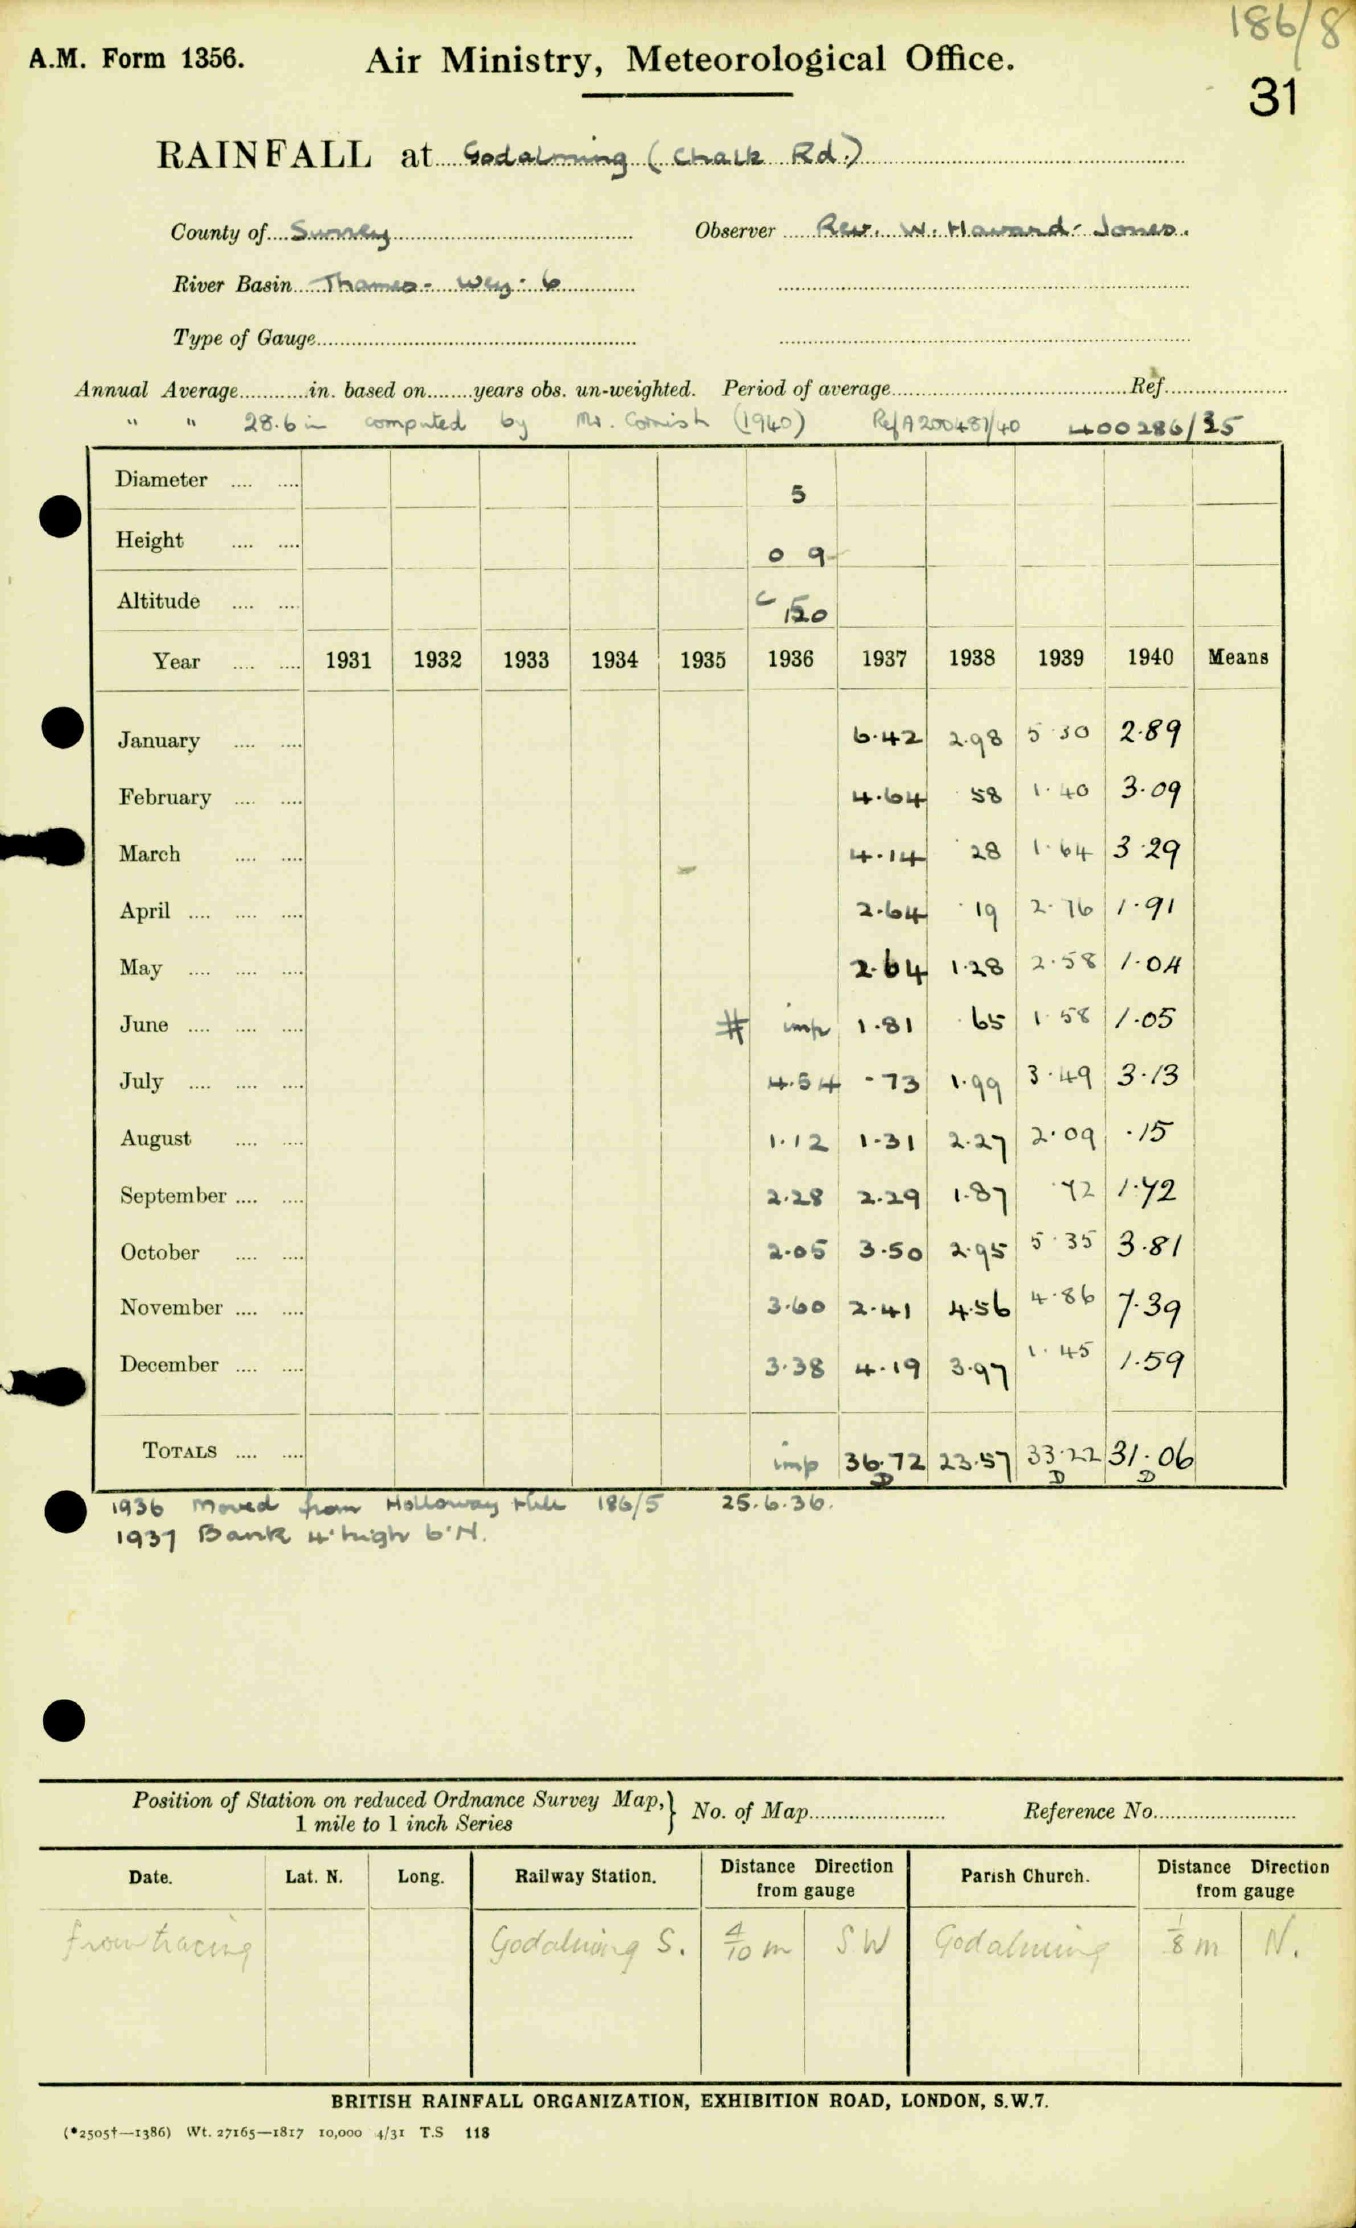 186/8
A.M. Form 1356. Air Ministry, Meteorological Office.
31
RAINFALL at Godalming (Chalk Rd.)
County of Surrey Observer Rev. W. Havard-Jones.
River Basin Thames - Wey - 6
Type of Gauge
Annual Average............in. based on........years obs. un-weighted. Period of average Ref.
" " 28.6 in computed by Mr. Cornish (1940) Ref A200481/40 400286/35
Diameter .... .... 5
Height .... .... 0 9
Altitude .... .... c 150
Year .... .... 1931 1932 1933 1934 1935 1936 1937 1938 1939 1940 Means
January .... .... 6.42 2.98 5.30 2.89
February .... .... 4.64 .58 1.40 3.09
March .... .... 4.14 .28 1.64 3.29
April .... .... .... 2.64 .19 2.76 1.91
May .... .... .... 2.64 1.28 2.58 1.04
June .... .... .... # imp 1.81 .65 1.58 1.05
July .... .... .... 4.54 .73 1.99 3.49 3.13
August .... .... 1.12 1.31 2.27 2.09 .15
September .... .... 2.28 2.29 1.87 .72 1.72
October .... .... 2.05 3.50 2.95 5.35 3.81
November .... .... 3.60 2.41 4.56 4.86 7.39
December .... .... 3.38 4.19 3.97 1.45 1.59
TOTALS .... .... imp 36.72 23.57 33.22 31.06
D D D
1936 Moved from Holloway Hill 186/5 25.6.36.
1937 Bank 4' high 6' N.
Position of Station on reduced Ordnance Survey Map, } No. of Map Reference No.
1 mile to 1 inch Series
Date. Lat. N. Long. Railway Station. Distance Direction from gauge Parish Church. Distance Direction from gauge
from tracing Godalming S. 4/10 m SW Godalming 1/8 m N.
BRITISH RAINFALL ORGANIZATION, EXHIBITION ROAD, LONDON, S.W.7.
(*2505†—1386) Wt. 27165—1817 10,000 4/31 T.S 118